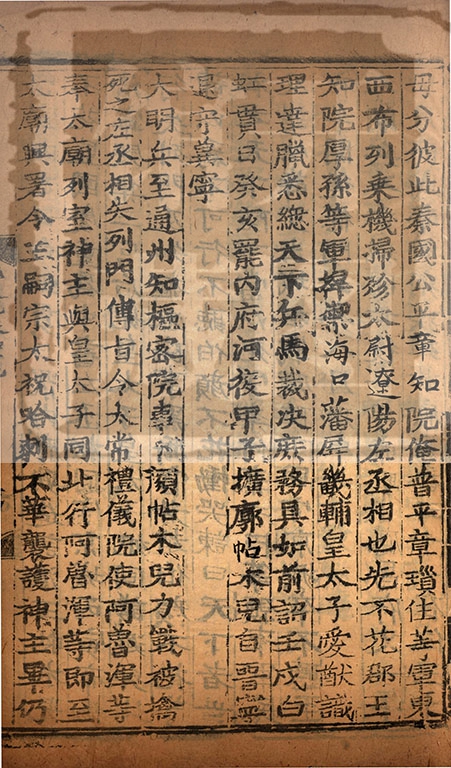 毋分彼此秦國公平章知院俺普平章瑣住等軍東
西布列乗機掃殄太尉遼陽左丞相也先不花郡王
知院厚孫等軍捍禦海口藩屏畿輔皇太子愛猷識
理達臘悉總天下兵馬裁决庶務具如前詔壬戌白
虹貫日癸亥罷內府河役甲子擴廓帖木兒自晋寧
退守冀寧
大明兵至通州知樞密院事卜顔帖木兒力戰被擒
死之左丞相失列門傳旨令太常禮儀院使阿魯渾等
奉太廟列室神主與皇太子同北行阿魯渾等即至
太廟與署令王嗣宗太祝哈剌不華襲護神主畢仍